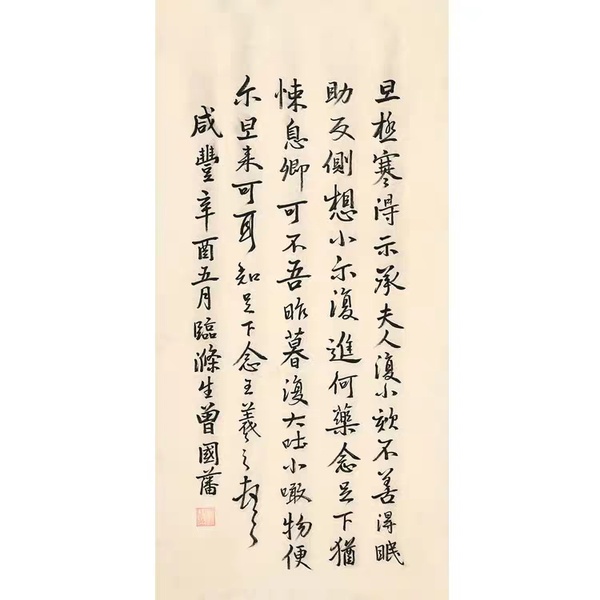 旦極寒得示承夫人復小欬不善得眠
助反側想小尒復進何藥念足下猶
悚息卿可不吾昨暮復大吐小噉物便
尔旦来可耳知足下念王羲之頓首
咸豐辛酉五月臨滌生曾國藩